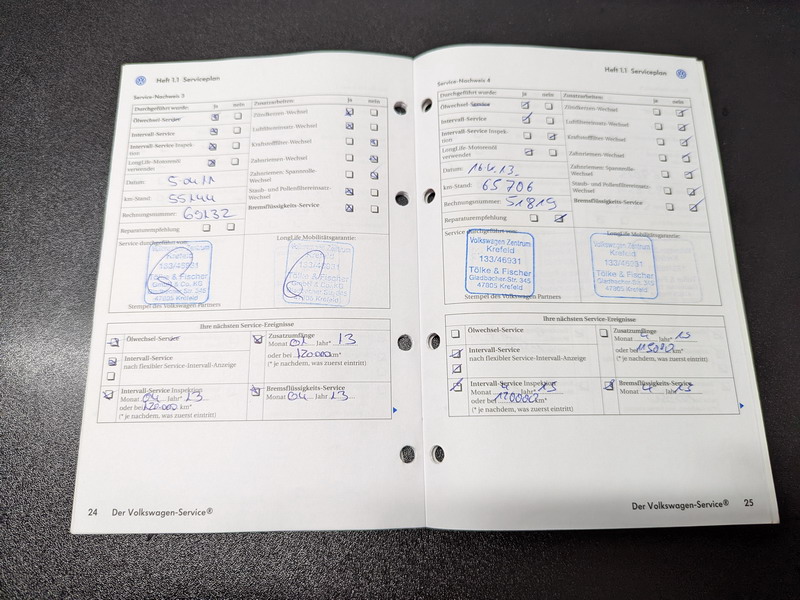 Heft 1.1 Serviceplan
Service-Nachweis 3
Durchgeführt wurde: Ja nein Zusatzarbeiten: Ja nein
Ölwechsel-Service Zündkerzen-Wechsel
Intervall-Service Luftfiltereinsatz-Wechsel
Intervall-Service Inspek-
tion Kraftstofffilter-Wechsel
LongLife-Motorenöl
verwendet Zahnriemen-Wechsel
Datum: Zahnriemen: Spannrolle-
Wechsel
km-Stand: 55144 Staub- und Pollenfiltereinsatz-
Wechsel
Rechnungsnummer: 69132 Bremsflüssigkeits-Service
Reparaturempfehlung
Service durchgeführt von: LongLife Mobilitätsgarantie:
Volkswagen Zentrum
Krefeld
133/46931
Tölke & Fischer
GmbH & Co. KG
Gladbacher Str. 345
47805 Krefeld
Volkswagen Zentrum
Krefeld
133/46931
Tölke & Fischer
GmbH & Co. KG
Gladbacher Str. 345
47805 Krefeld
Stempel des Volkswagen Partners
Ihre nächsten Service-Ereignisse
Ölwechsel-Service Zusatzumfänge
Monat 04 Jahr* 13
Intervall-Service oder bei 120000 km*
nach flexibler Service-Intervall-Anzeige (* je nachdem, was zuerst eintritt)
Intervall-Service Inspektion Bremsflüssigkeits-Service
Monat 04 Jahr* 13 Monat 04 Jahr 13
oder bei 120000 km*
(* je nachdem, was zuerst eintritt)
24 Der Volkswagen-Service®
Heft 1.1 Serviceplan
Service-Nachweis 4
Durchgeführt wurde: Ja nein Zusatzarbeiten: Ja nein
Ölwechsel-Service Zündkerzen-Wechsel
Intervall-Service Luftfiltereinsatz-Wechsel
Intervall-Service Inspek-
tion Kraftstofffilter-Wechsel
LongLife-Motorenöl
verwendet Zahnriemen-Wechsel
Datum: 16.4.13. Zahnriemen: Spannrolle-
Wechsel
km-Stand: 65706 Staub- und Pollenfiltereinsatz-
Wechsel
Rechnungsnummer: 51819 Bremsflüssigkeits-Service
Reparaturempfehlung
Service durchgeführt von: LongLife Mobilitätsgarantie:
Volkswagen Zentrum
Krefeld
133/46931
Tölke & Fischer
Gladbacher Str. 345
47805 Krefeld
Volkswagen Zentrum
Krefeld
133/46931
Tölke & Fischer
Gladbacher Str. 345
47805 Krefeld
Stempel des Volkswagen Partners
Ihre nächsten Service-Ereignisse
Ölwechsel-Service Zusatzumfänge
Monat 4 Jahr* 15
Intervall-Service oder bei km*
nach flexibler Service-Intervall-Anzeige (* je nachdem, was zuerst eintritt)
Intervall-Service Inspektion Bremsflüssigkeits-Service
Monat 4 Jahr* 15 Monat 4 Jahr 15
oder bei 120000 km*
(* je nachdem, was zuerst eintritt)
Der Volkswagen-Service® 25